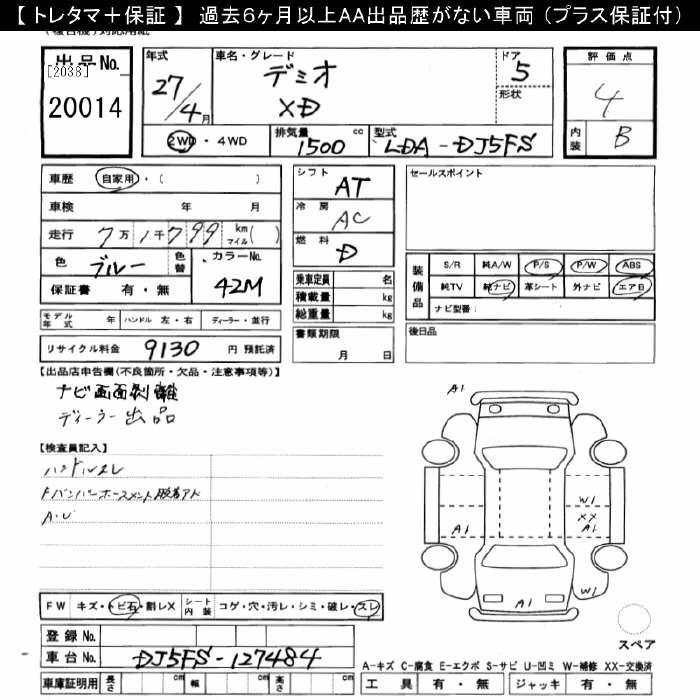 【トレタマ＋保証】 過去6ヶ月以上AA出品歴がない車両（プラス保証付）
出品No.
[2038]
20014
年式
27/4月
車名・グレード
デミオ
XD
ドア
5
形状
評価点
4
内装 B
2WD・4WD
排気量 1500 cc
型式 LDA-DJ5FS
車歴 自家用・( )
車検 年 月
走行 7万1千799 km マイル( )
色 ブルー 色替
カラーNo. 42M
保証書 有・無
モデル年式 年 ハンドル 左・右 ディーラー・並行
リサイクル料金 9130 円 預託済
シフト AT
冷房 AC
燃料 D
乗車定員 名
積載量 kg
総重量 kg
書類期限
月 日
セールスポイント
装備品
S/R 純A/W P/S P/W ABS
純TV 純ナビ 革シート 外ナビ エアB
ナビ型番:
後日品
【出品店申告欄(不良箇所・欠品・注意事項等)】
ナビ画面剥離
ディーラー出品
【検査員記入】
ハンドルスレ
A・U
FW キズ・トビ石・割レX シート内装 コゲ・穴・汚レ・シミ・破レ・スレ
登録No.
車台No. DJ5FS-127484
車庫証明用 長さ cm 幅 cm 高さ cm
A1
W1
XX
A1
A1
W1
A1
スペア
A-キズ C-腐食 E-エクボ S-サビ U-凹ミ W-補修 XX-交換済
工具 有・無 ジャッキ 有・無